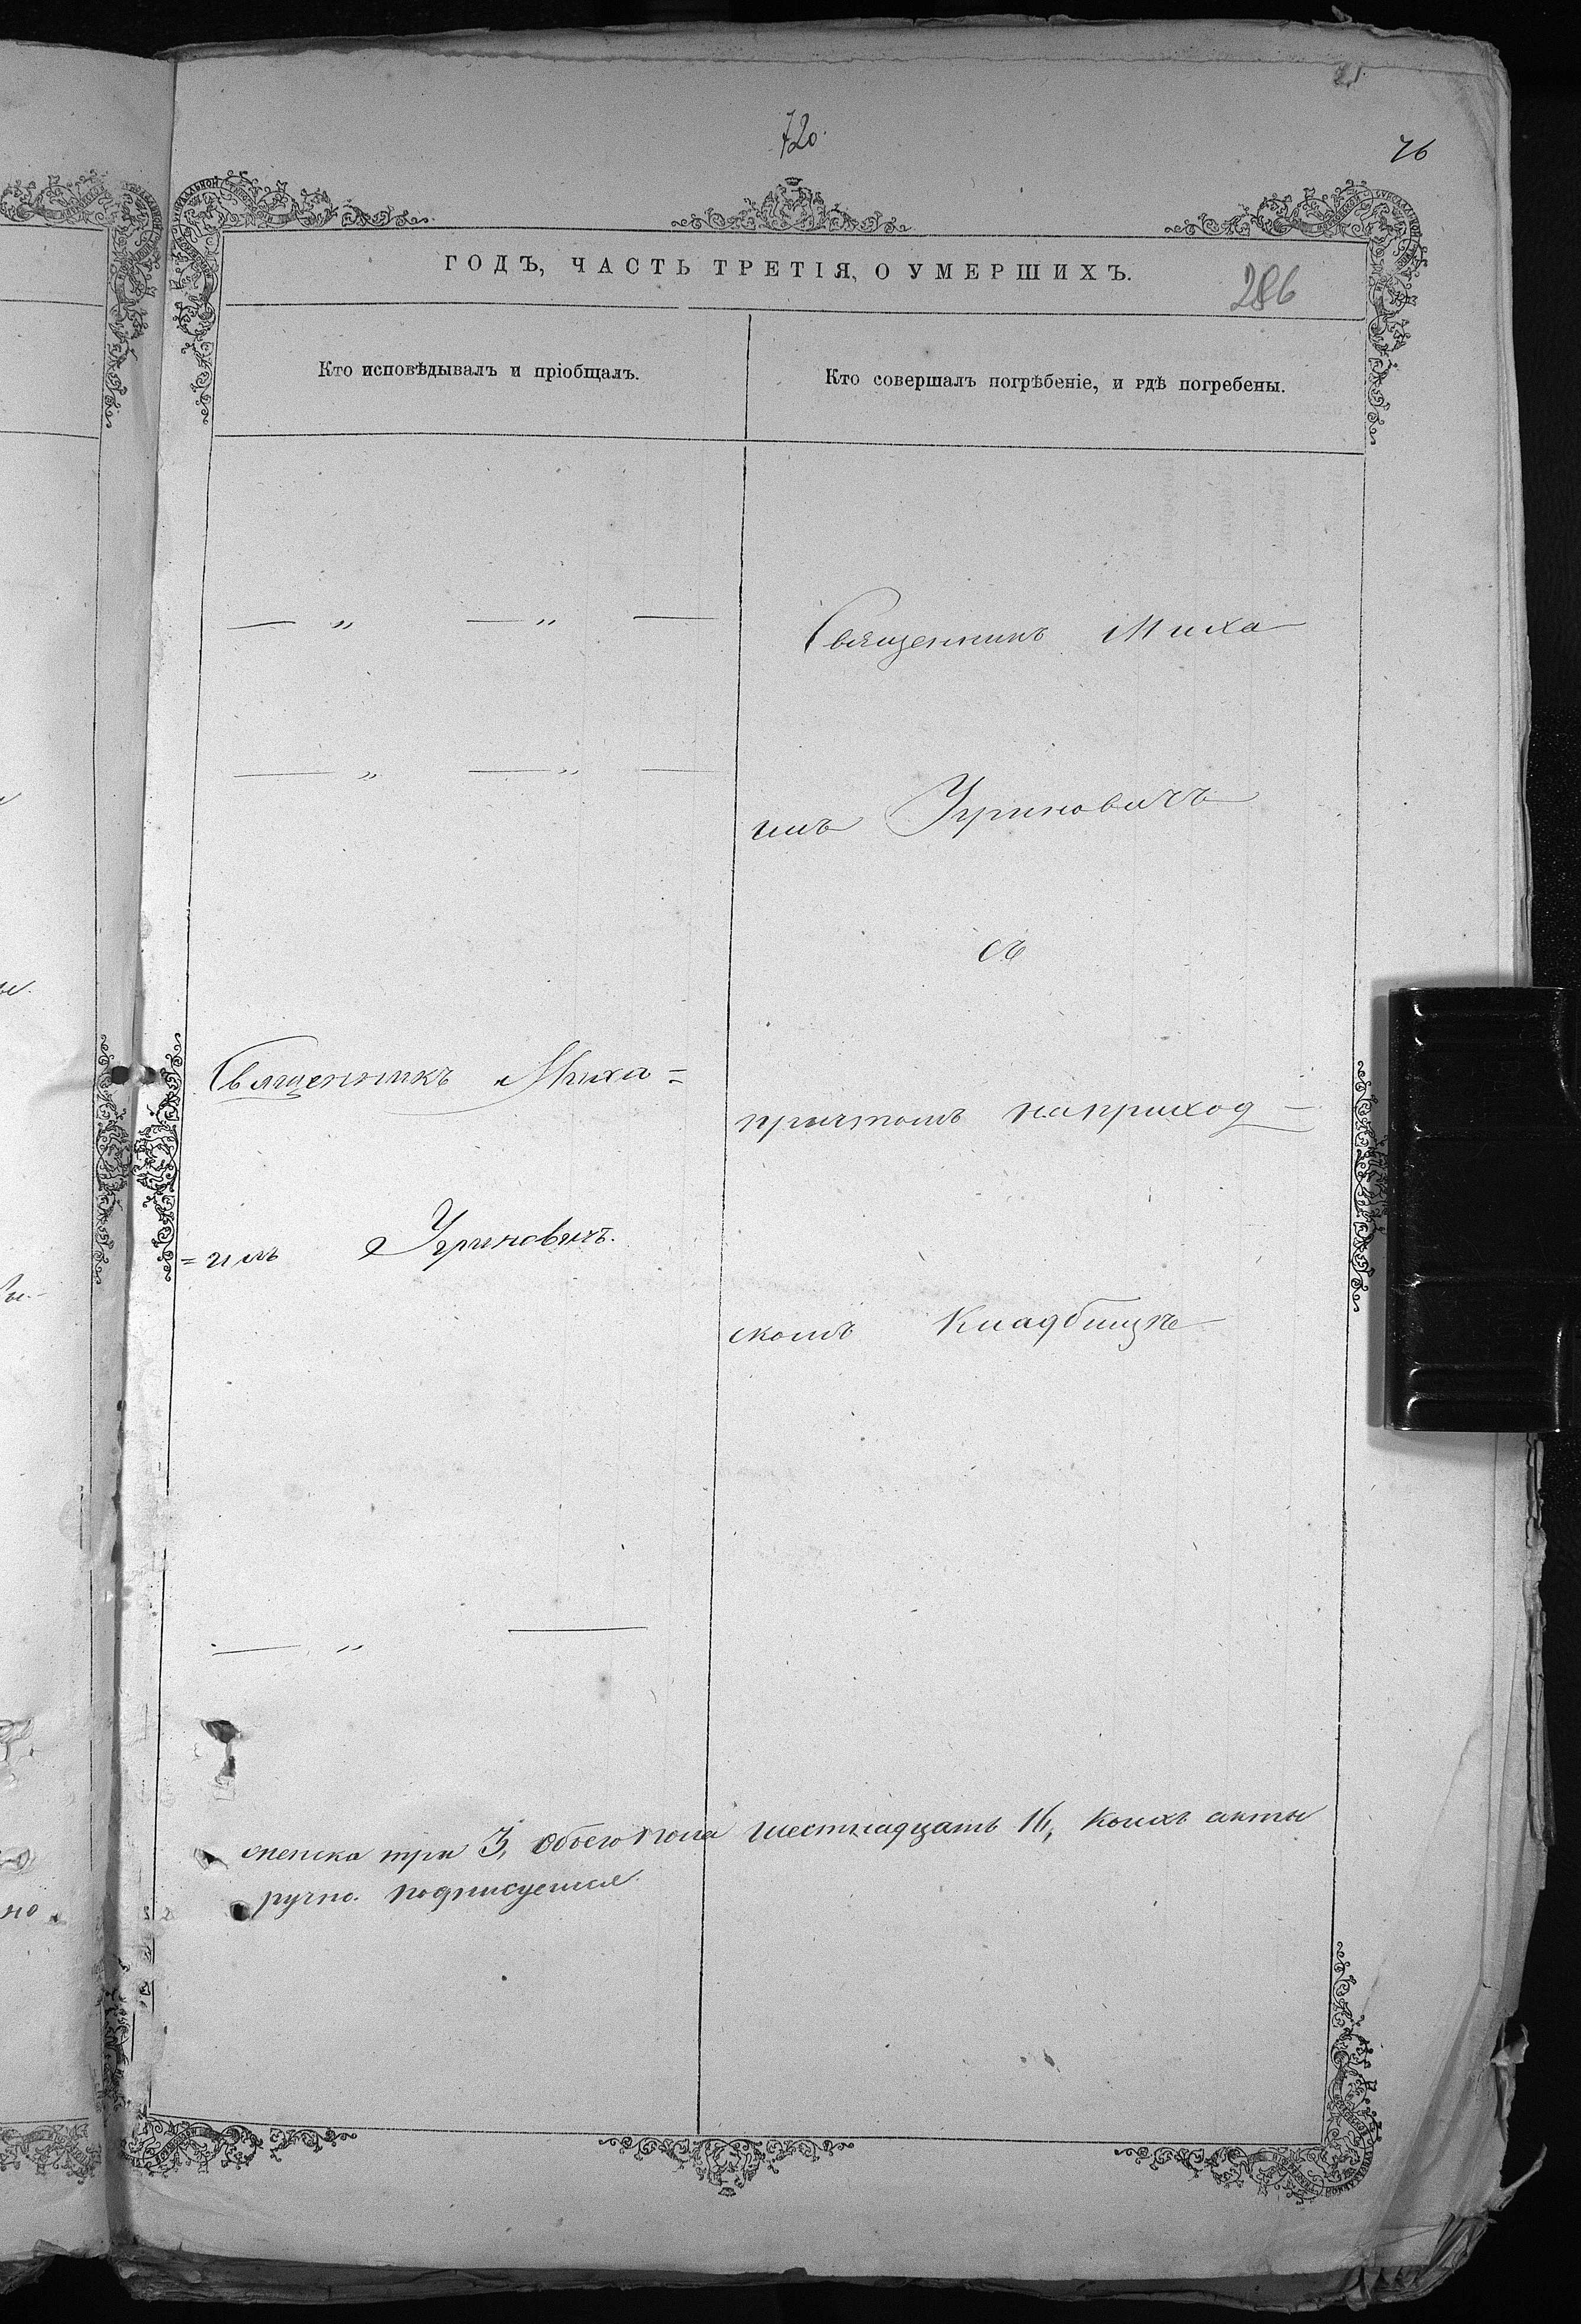 720.
76
ГОДЪ, ЧАСТЬ ТРЕТІЯ, О УМЕРШИХЪ.
286
Кто исповѣдывалъ и пріобщалъ.
Кто совершалъ погрѣбеніе, и гдѣ погребены.
— „ — „ —
— „ — „ —
Священникъ Миха=
=илъ Угриновичъ.
— „ —
Священникъ Миха
илъ Угриновичъ
съ
причтомъ на приход-
скомъ кладбищѣ
женска три 3, обоего пола шестнадцать 16, коихъ акты
ручно подписуемся